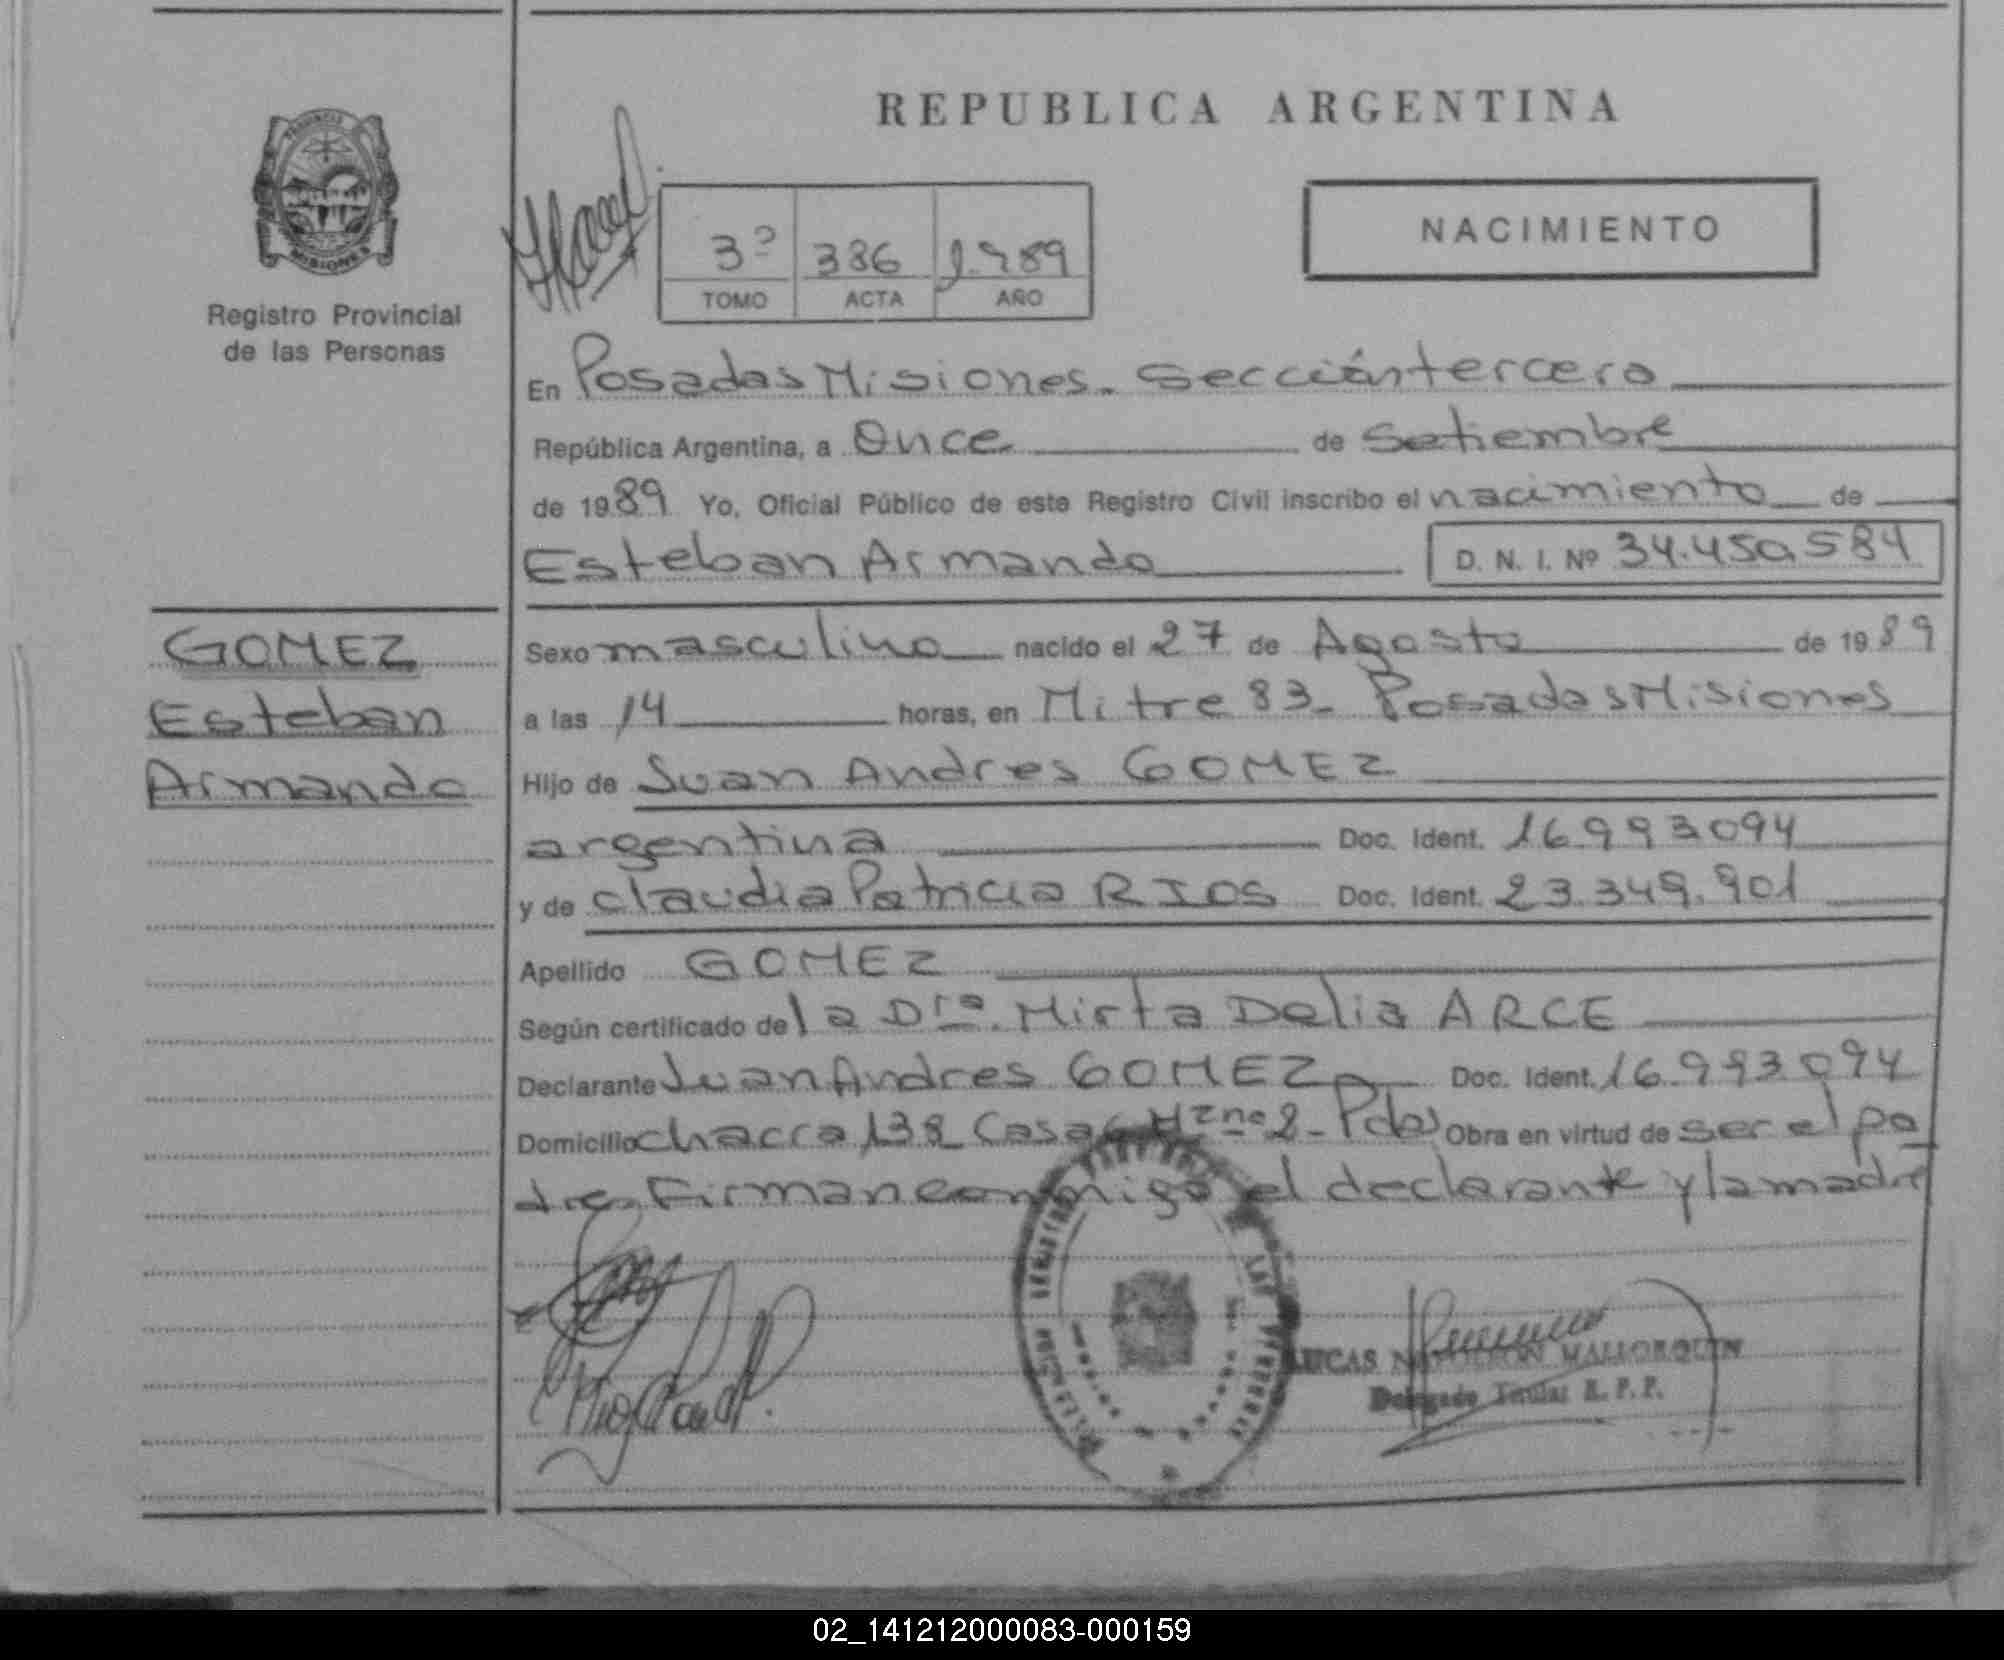 REPUBLICA ARGENTINA
PROVINCIA
MISIONES
Registro Provincial
de las Personas
3º 386 1.989
TOMO ACTA AÑO
NACIMIENTO
En Posadas Misiones. Sección tercera
República Argentina, a Once de Setiembre
de 1989 Yo, Oficial Público de este Registro Civil inscribo el nacimiento de
Esteban Armando D. N. I. Nº 34.450.584
GOMEZ
Esteban
Armando
Sexo masculino nacido el 27 de Agosto de 1989
a las 14 horas, en Mitre 83- Posadas Misiones
Hijo de Juan Andres GOMEZ
argentina Doc. Ident. 16.993.094
y de Claudia Patricia RIOS Doc. Ident. 23.349.901
Apellido GOMEZ
Según certificado de la Dra. Mirta Delia ARCE
Declarante Juan Andres GOMEZ Doc. Ident. 16.993.094
Domicilio chacra 138 Casa Mzna 2- Pdas Obra en virtud de ser el pa
dre. Firman conmigo el declarante y la madre
LUCAS NAPOLEON MALLORQUIN
Delegado Titular R. P. P.
02_141212000083-000159